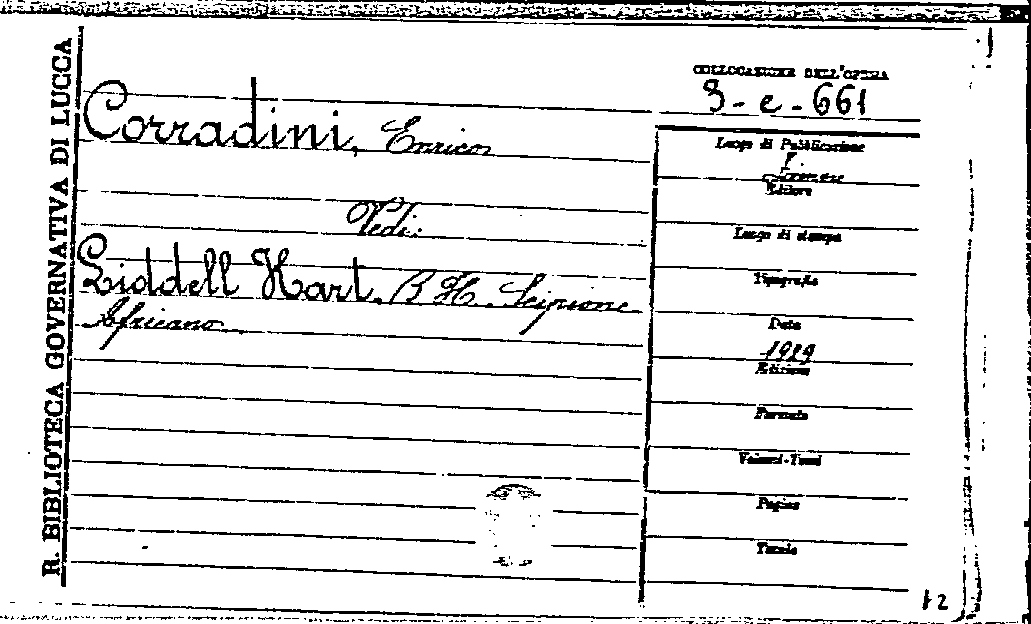 R. BIBLIOTECA GOVERNATIVA DI LUCCA
Corradini, Enrico
Vedi:
Liddell Hart, B. H. Scipione
Africano
COLLOCAZIONE DELL'OPERA
3-e-661
Luogo di Pubblicazione
Firenze
Editore
Luogo di stampa
Tipografia
Data
1929
Edizione
Formato
Volumi-Tomi
Pagine
Tavole
12